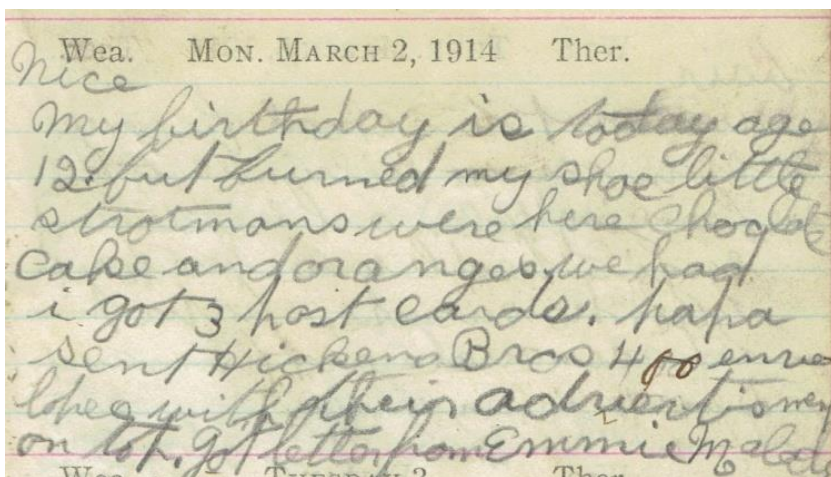 Wea. MON. MARCH 2, 1914 Ther.
Nice
My birthday is today age
12. but burned my shoe little
strotmans were here Choclate
cake and oranges we had
i got 3 post cards. papa
sent Hickens Bros 400 enve
lopes with their advertisment
on top. Got letter from Emmie
Wea. TUESDAY 3 Ther.